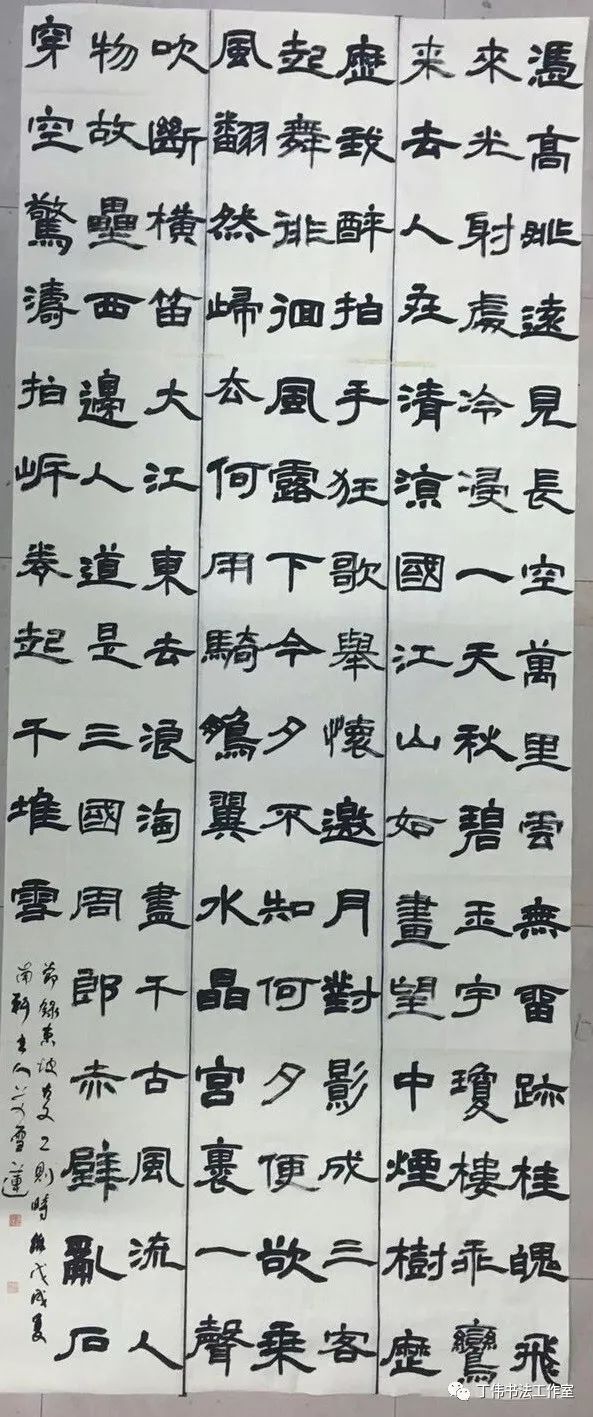 憑高眺遠見長空萬里雲無留跡桂魄飛
來光射處冷浸一天秋碧玉宇瓊樓乖鸞
来去人在清涼國江山如畫望中煙樹歷
歷我醉拍手狂歌舉懷邀月對影成三客
起舞徘徊風露下今夕不知何夕便欲乘
風翻然歸去何用騎鵬翼水晶宮裏一聲
吹斷橫笛大江東去浪淘盡千古風流人
物故壘西邊人道是三國周郎赤壁亂石
穿空驚濤拍岸卷起千堆雪
節錄東坡古文二則時維戊戌夏
南軒主人雪蓮
丁伟书法工作室